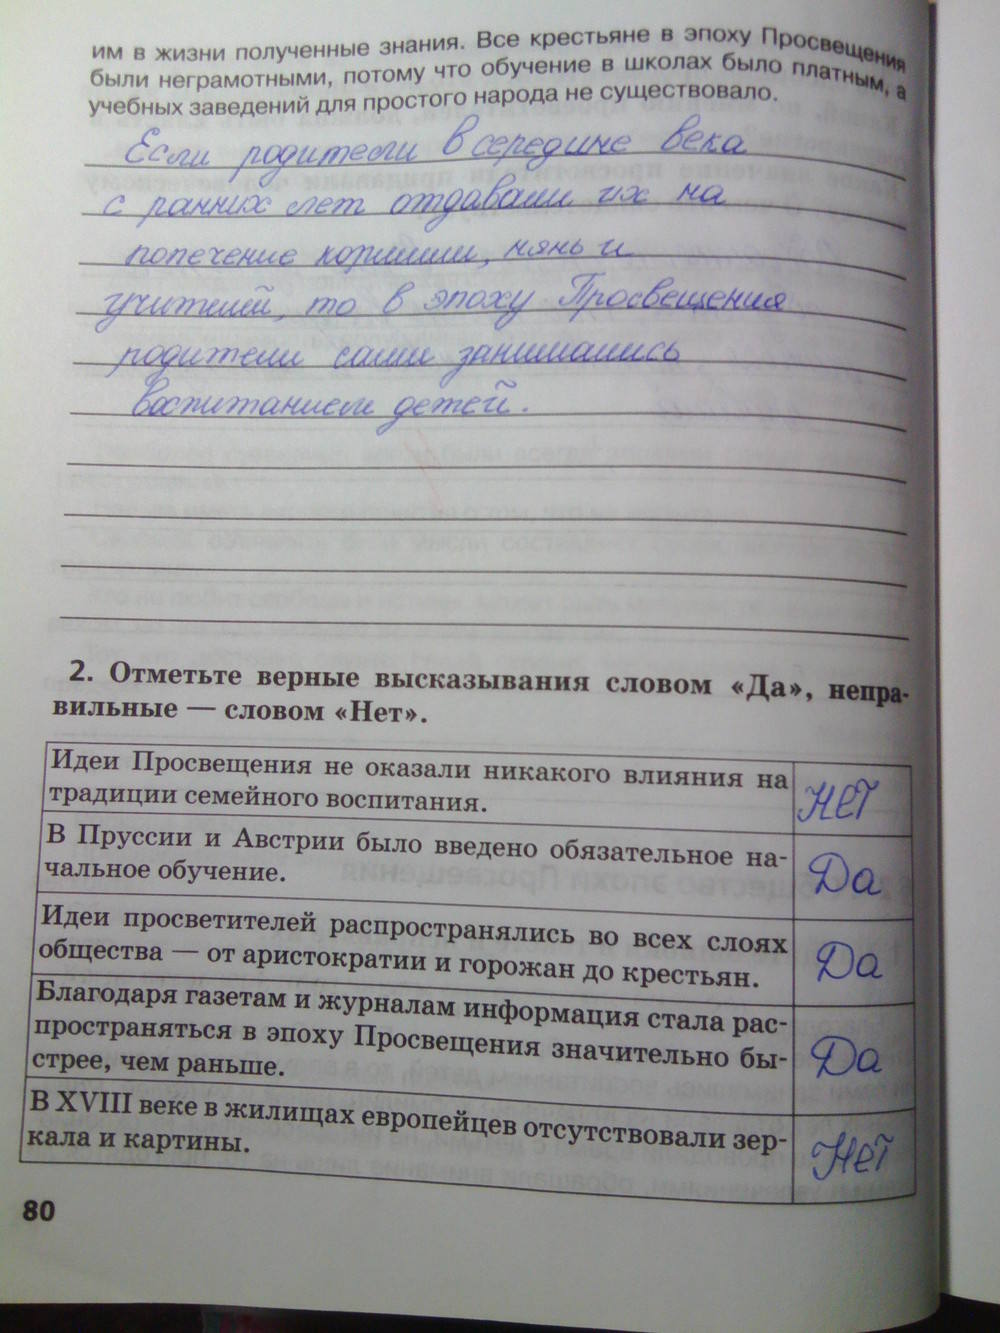 им в жизни полученные знания. Все крестьяне в эпоху Просвещения
были неграмотными, потому что обучение в школах было платным, а
учебных заведений для простого народа не существовало.
Если родители в середине века
с ранних лет отдавали их на
попечение кормилиц, нянь и
учителей, то в эпоху Просвещения
родители сами занимались
воспитанием детей.
2. Отметьте верные высказывания словом «Да», непра-
вильные — словом «Нет».
Идеи Просвещения не оказали никакого влияния на
традиции семейного воспитания.
НЕТ
В Пруссии и Австрии было введено обязательное на-
чальное обучение.
Да
Идеи просветителей распространялись во всех слоях
общества — от аристократии и горожан до крестьян.
Да
Благодаря газетам и журналам информация стала рас-
пространяться в эпоху Просвещения значительно бы-
стрее, чем раньше.
Да
В XVIII веке в жилищах европейцев отсутствовали зер-
кала и картины.
Нет
80